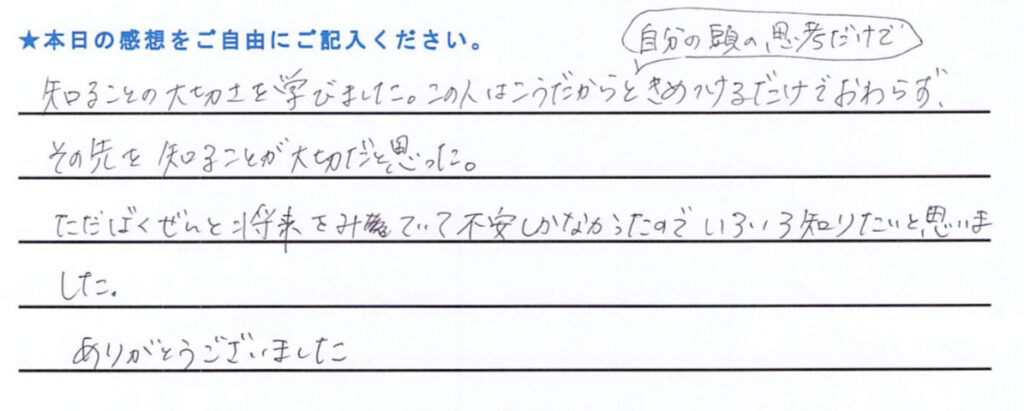 ★本日の感想をご自由にご記入ください。
自分の頭の思考だけで
知ることの大切さを学びました。この人はこうだからときめつけるだけでおわらず、
その先を知ることが大切だと思った。
ただばくぜんと将来をみていて不安しかなかったのでいろいろ知りたいと思いま
した。
ありがとうございました